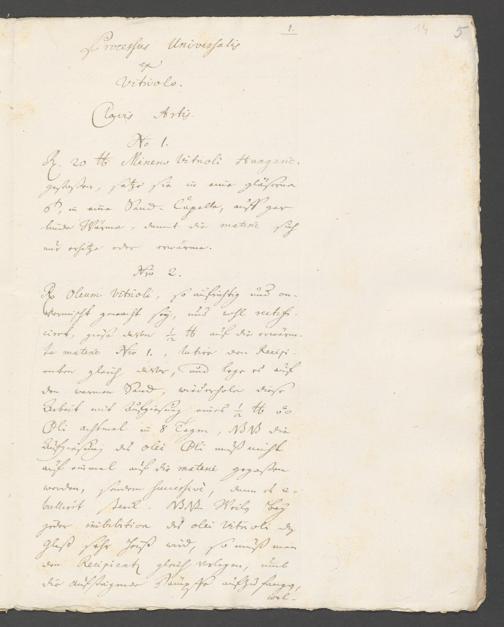 1.
14
5
Processus Universalis
ex
Vitriolo.
Clavis Artis.
No 1.
℞. 20 ℔ Minerae Vitrioli Hungaric.
gestoßen, setze sie in eine gläserne
in eine Sand-Capelle, auff gar
linde Wärme, damit die materie sich
nur erhitze oder erwärme.
Nro 2.
℞ Oleum Vitrioli, so aufrichtig und un-
vermischt gemacht sey, und wohl rectifi-
cirt, gieße davon ½ ℔ auf die erwärm-
te materie Nro 1., lutire den Recipi-
enten gleich davor, und lege es auf
den warmen Sand, wiederhole diese
Arbeit mit Aufgießung eines ½ ℔
Oli achtmal in 8 Tagen, NB die
Aufgießung des olei muß nicht
auf einmal auf die materie gegossen
werden, sondern successive, denn es e-
bullirt stark. NB Weil bey
jeder imbibition des olei Vitrioli das
Glaß sehr heiß wird, so muß man
den Recipienten gleich vorlegen, umb
die aufsteigende Dämpffe aufzufangen,
wel-